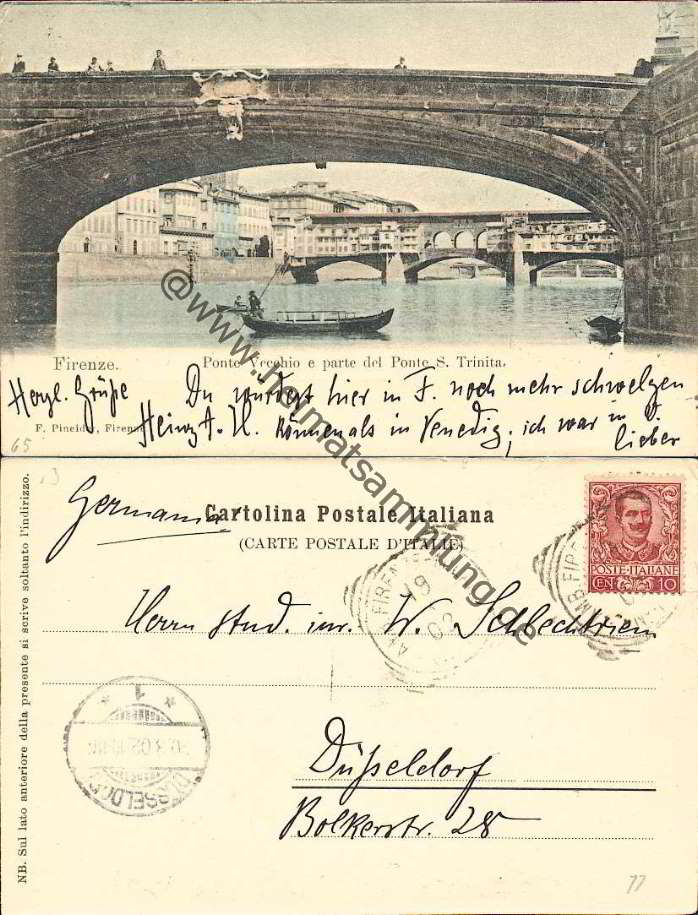 Firenze.
Ponte Vecchio e parte del Ponte S. Trinita.
Herzl. Grüße
Du würdest hier in F. noch mehr schwelgen
F. Pineider, Firenze
Heinz A. H.
können als in Venedig, ich war in V.
lieber
65
@www.heimatsammlung.de
Germania
Cartolina Postale Italiana
(CARTE POSTALE D'ITALIE)
POSTE·ITALIANE
CEN 10
AMB. FIRE
18
02
AMB. FIR
Herrn stud. iur. W. Schlechtriem
1
3.02
DÜSSELDORF
Düsseldorf
Bolkerstr. 28
NB. Sul lato anteriore della presente si scrive soltanto l'indirizzo.
77